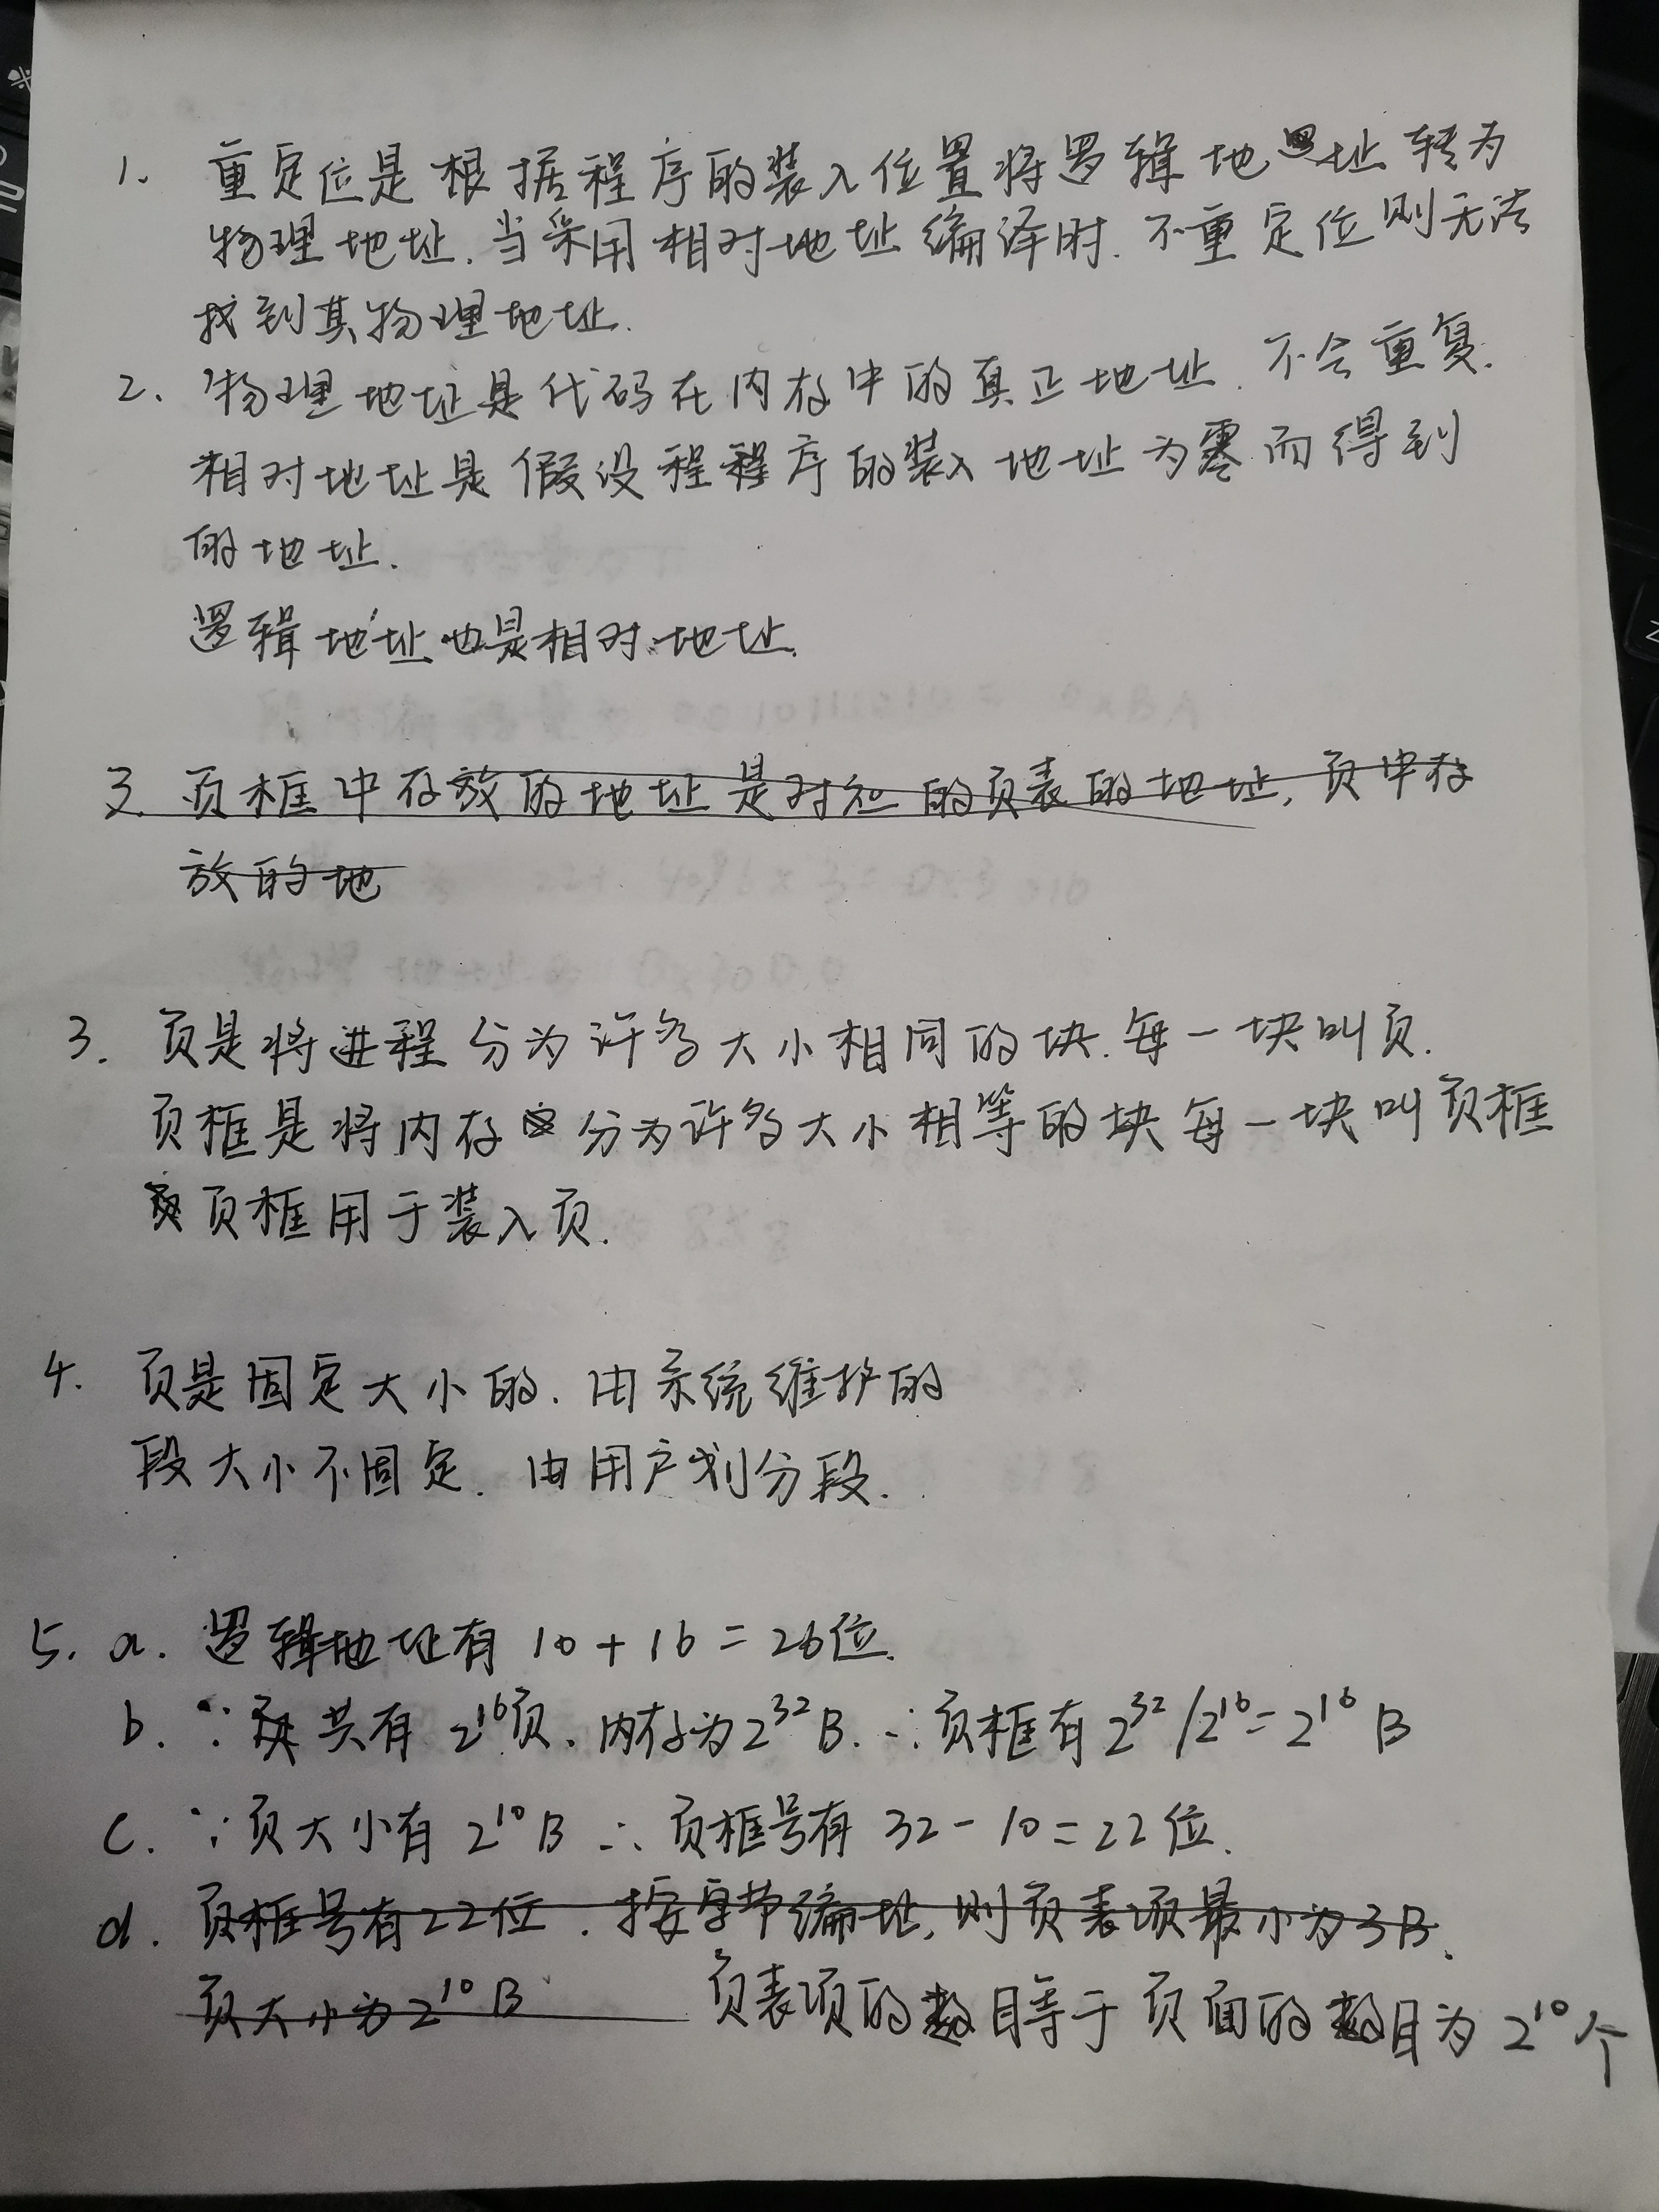 1. 重定位是根据程序的装入位置将逻辑地址转为
物理地址.当采用相对地址编译时.不重定位则无法
找到其物理地址.
2. 物理地址是代码在内存中的真正地址.不会重复.
相对地址是假设程程序的装入地址为零而得到
的地址.
逻辑地址也是相对地址.
3. 页框中存放的地址是对应的页表的地址,页中存
放的地
3. 页是将进程分为许多大小相同的块.每一块叫页.
页框是将内存分为许多大小相等的块每一块叫页框
页框用于装入页.
4. 页是固定大小的.由系统维护的
段大小不固定.由用户划分段.
5. a. 逻辑地址有10+16=26位.
b. ∵共有2¹⁶页.内存为2³²B.∴页框有2³²/2¹⁶=2¹⁶B
c. ∵页大小有2¹⁰B ∴页框号有32-10=22位.
d. 页框号有22位.按字节编址,则页表项最小为3B.
页大小为2¹⁰B 页表项的数目等于页面的数目为2¹⁰个